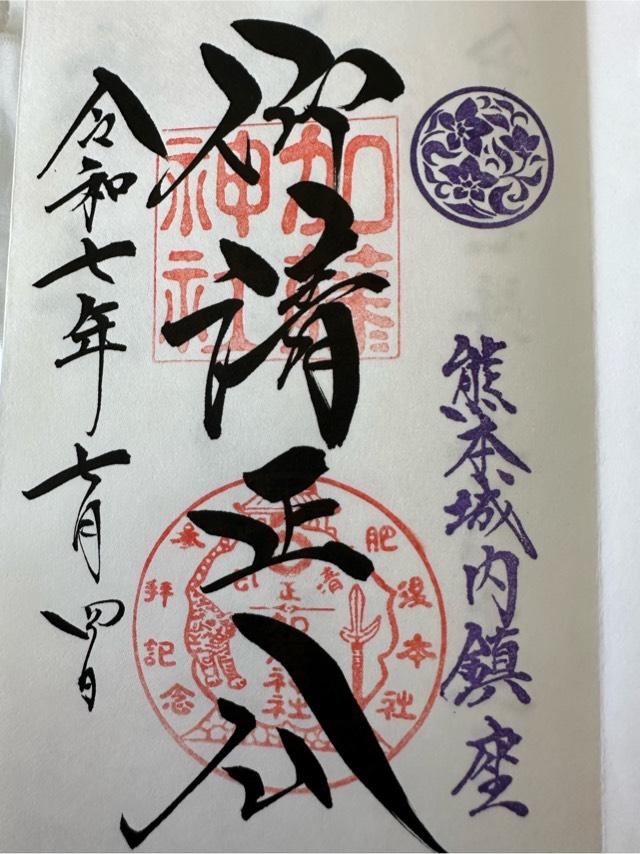 熊本城内鎮座
仰清正公
加藤
神社
肥後本社
参拝記念
令和七年七月四日